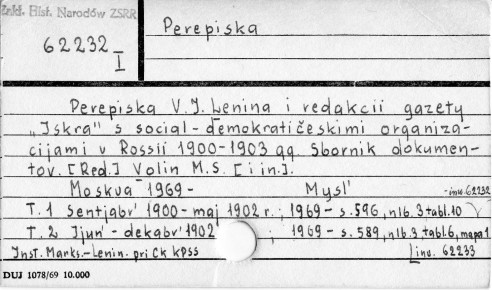 Zakł. Hist. Narodów ZSRR
62232
I
Perepiska
Perepiska V. J. Lenina i redakcii gazety
„Iskra" s social-demokratičeskimi organiza-
cijami v Rossii 1900-1903 gg. Sbornik dokumen-
tov. [Red.] Volin M.S. [i in.].
Moskva 1969- Mysl' -inw. 62232
T. 1 Sentjabr' 1900 - maj 1902 r.; 1969 - s. 596, nlb. 3 tabl. 10
T. 2 Ijun' - dekabr' 1902 ; 1969 - s. 589, nlb. 3 tabl. 6, mapa 1
Inst. Marks.-Lenin. pri CK KPSS inw. 62233
DUJ 1078/69 10.000